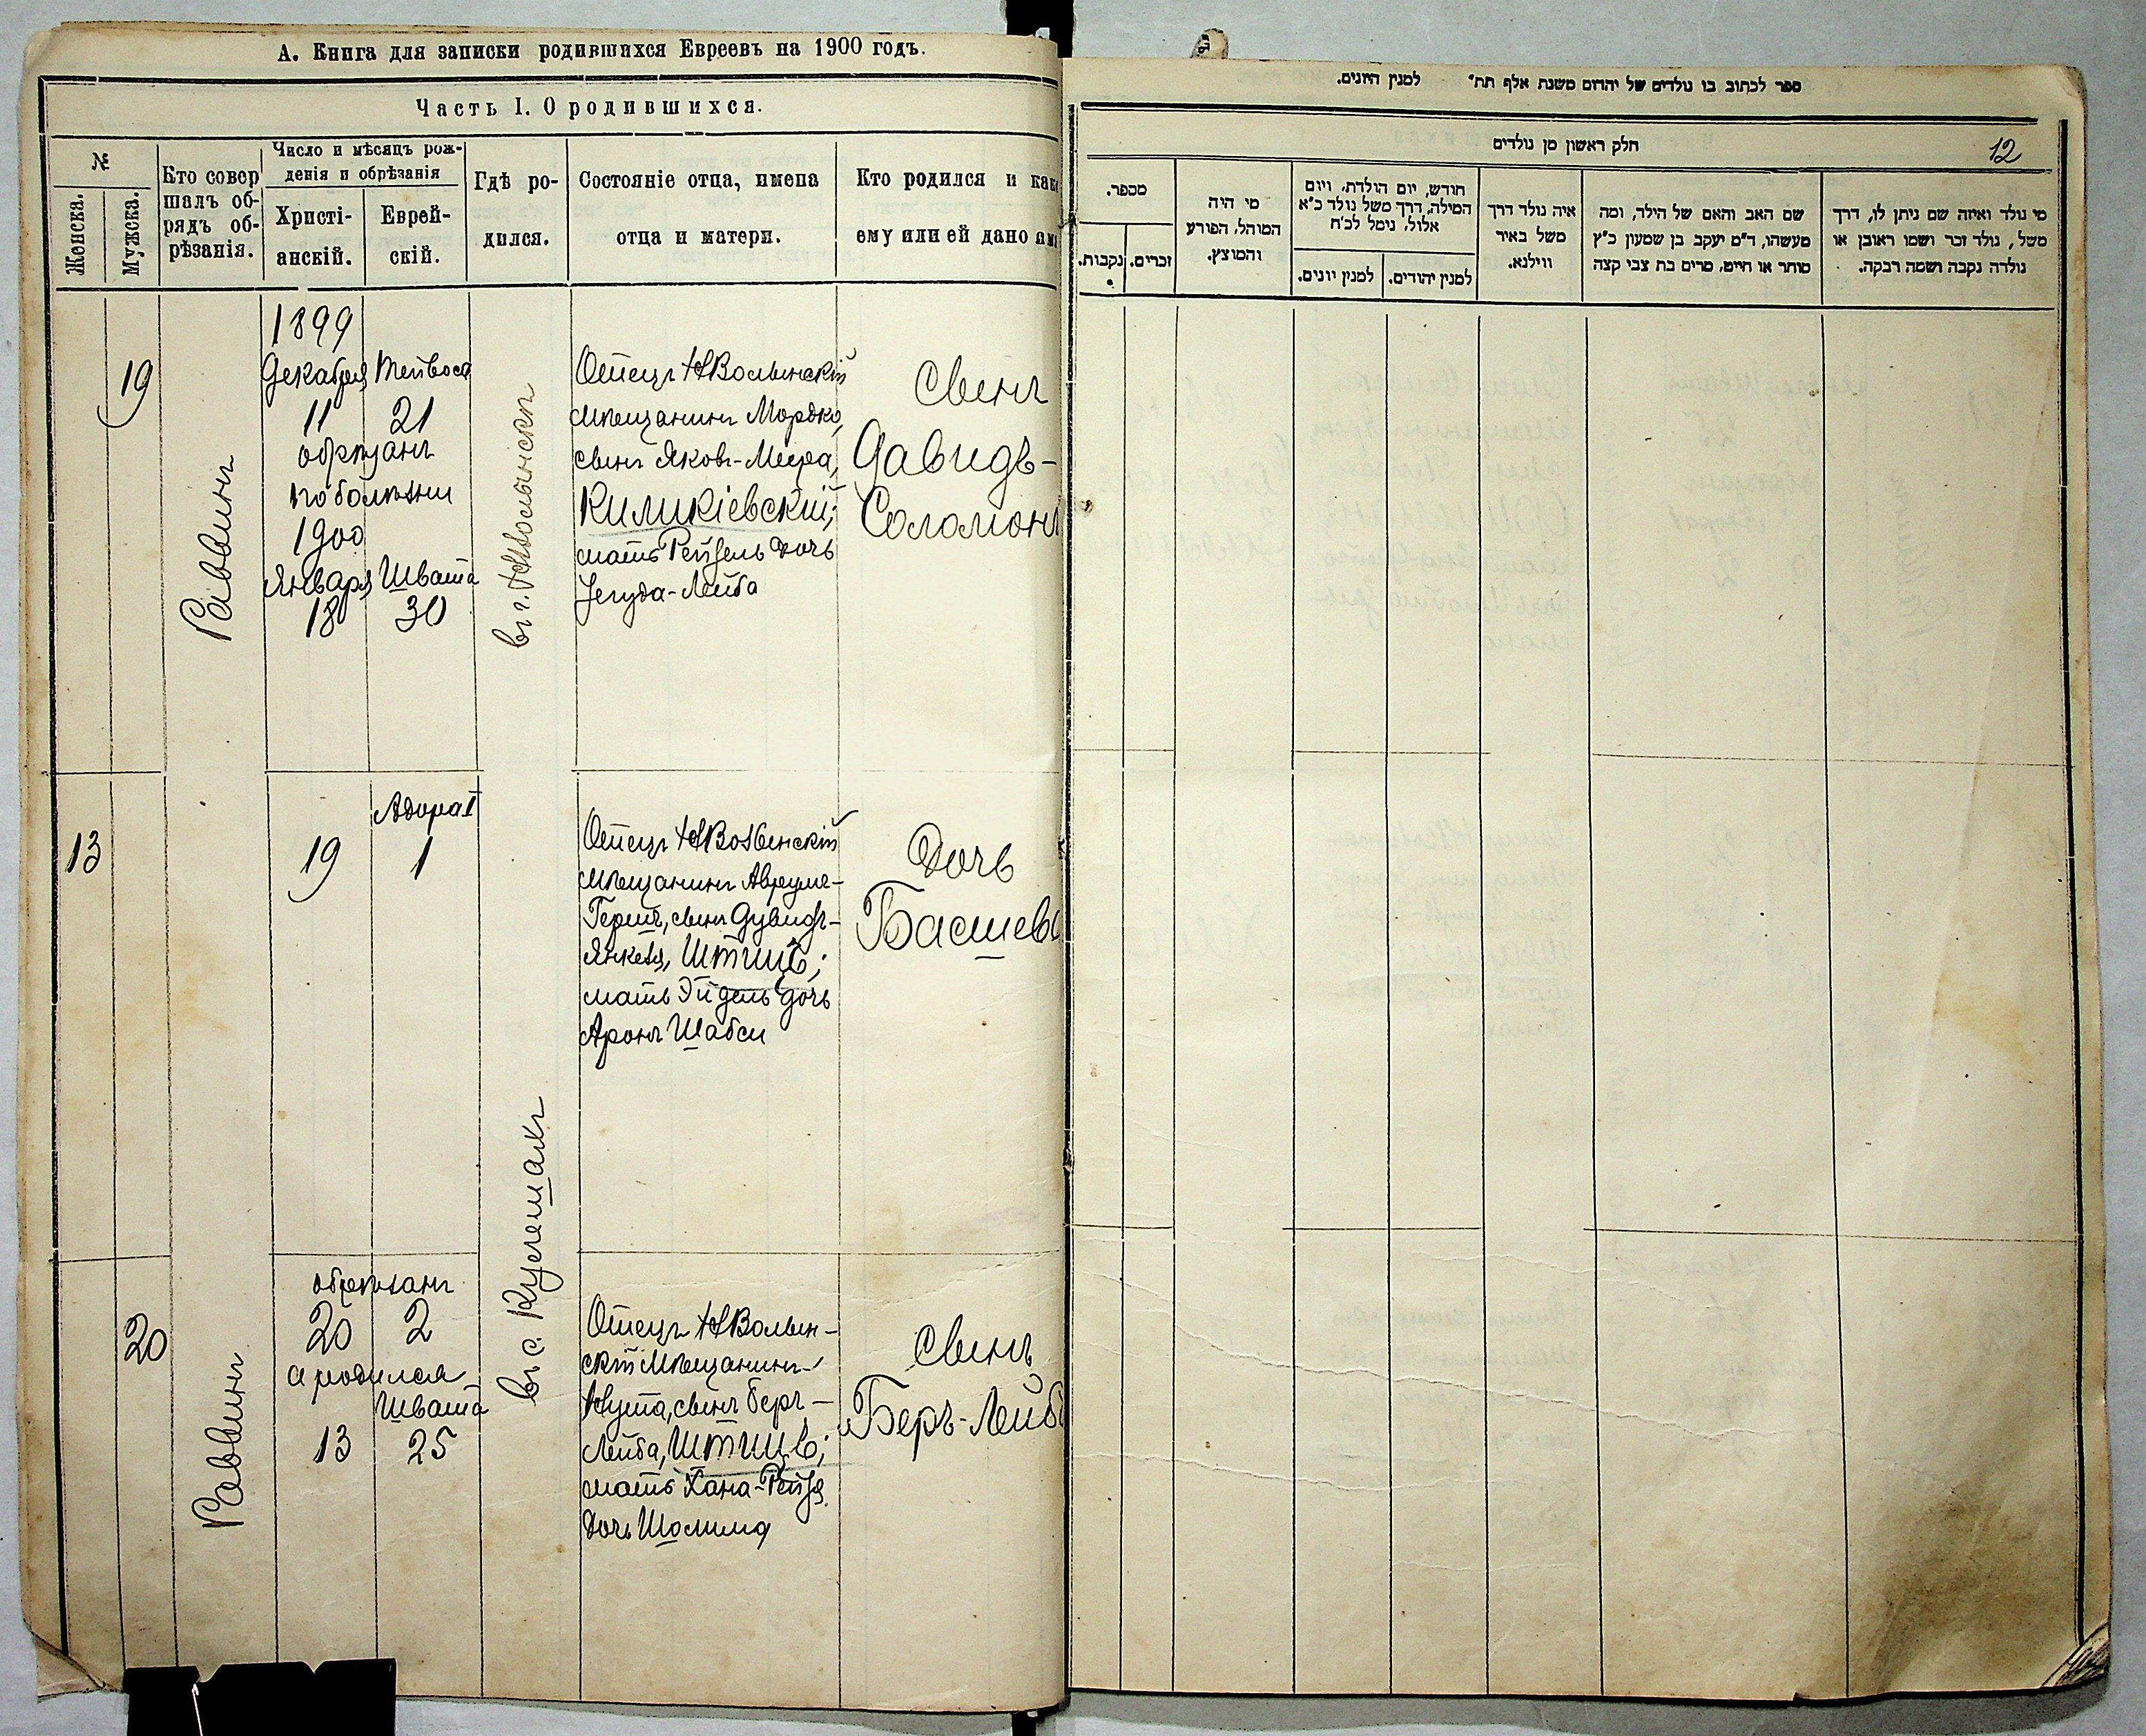 А. Книга для записки родившихся Евреевъ на 1900 годъ.
Часть I. О родившихся.
№
Женска.
Мужска.
Кто совер
шалъ об-
рядъ об-
рѣзанія.
Число и мѣсяцъ рож-
денія и обрѣзанія
Христі-
анскій.
Еврей-
скій.
Гдѣ ро-
дился.
Состояніе отца, имена
отца и матери.
Кто родился и как
ему или ей дано им
19
Раввинъ
1899
Декабря Тейвоса
11 21
обрѣзанъ
по болѣзни
1900
Января Швата
18 30
въ г. НВолынскѣ
Отецъ НВолынскій
мѣщанинъ Мордко,
сынъ Яковъ-Меера,
Киликіевскій;
мать Рейзель дочь
Іегуда-Лейба
Сынъ
Давидъ-
Соломонъ
13
Адора I
19 1
Отецъ НВолынскій
мѣщанинъ Аврумъ-
Гершъ, сынъ Дувидъ-
Янкеля, Штицъ;
мать Эйдель дочь
Аронъ Шабси
Дочь
Басшева
20
Раввинъ
обрѣзанъ
20 2
а родился
Швата
13 25
въ с.
Отецъ НВолын-
скій мѣщанинъ
Нута, сынъ Беръ-
Лейба, Штицъ;
мать Хана-Рейзя
дочь Шолима
Сынъ
Беръ-Лейб
ספר לכתוב בו נולדים של יהדום משנת אלף תת״ למנין היונים.
12
חלק ראשון מן נולדים
מספר.
נקבות.
זכרים.
מי היה
המוהל, הפורע
והמוצץ.
חודש, יום הולדת, ויום
המילה, דרך משל נולד כ״א
אלול, נימל לכ״ח
למנין יונים.
למנין יהודים.
איה נולד דרך
משל באיר
ווילנא.
שם האב והאם של הילד, ומה
מעשהו, ד״מ יעקב בן שמעון כ״ץ
סוחר או חייט, מרים בת צבי קצה
מי נולד ואיזה שם ניתן לו, דרך
משל, נולד זכר ושמו ראובן או
נולדה נקבה ושמה רבקה.